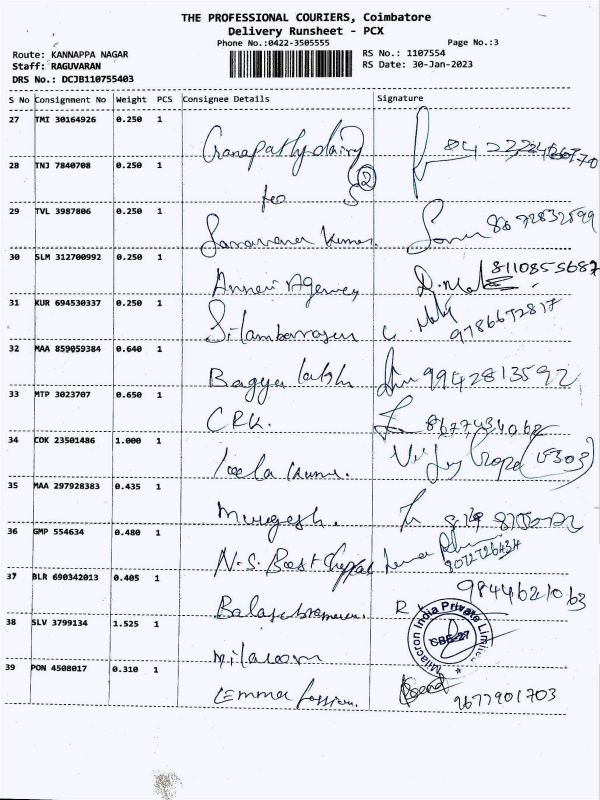 THE PROFESSIONAL COURIERS, Coimbatore
Delivery Runsheet - PCX
Phone No.:0422-3505555 Page No.:3
Route: KANNAPPA NAGAR RS No.: 1107554
Staff: RAGUVARAN RS Date: 30-Jan-2023
DRS No.: DCJB110755403
S No Consignment No Weight PCS Consignee Details Signature
27 TMI 30164926 0.250 1
Ganapathy dairy
28 TNJ 7840708 0.250 1
2
29 TVL 3987806 0.250 1
Saravana Kumar.
30 SLM 312700992 0.250 1 8110855687
Annai Agency
31 KUR 694530337 0.250 1
Silambarasan 9786672817
32 MAA 859059384 0.640 1
Bagya lakshmi 9942813592
33 MTP 3023707 0.650 1
CRK. 8677434068
34 COK 23501486 1.000 1
Leela Kumar.
35 MAA 297928383 0.435 1
Murugesh.
36 GMP 554634 0.480 1
N.S. Best
37 BLR 690342013 0.405 1 9844621063
Balasubramani
38 SLV 3799134 1.525 1 Milacron India Private Limited
CBE-27
Milacron
39 PON 4508017 0.310 1
Lemma fassion. 9677901703